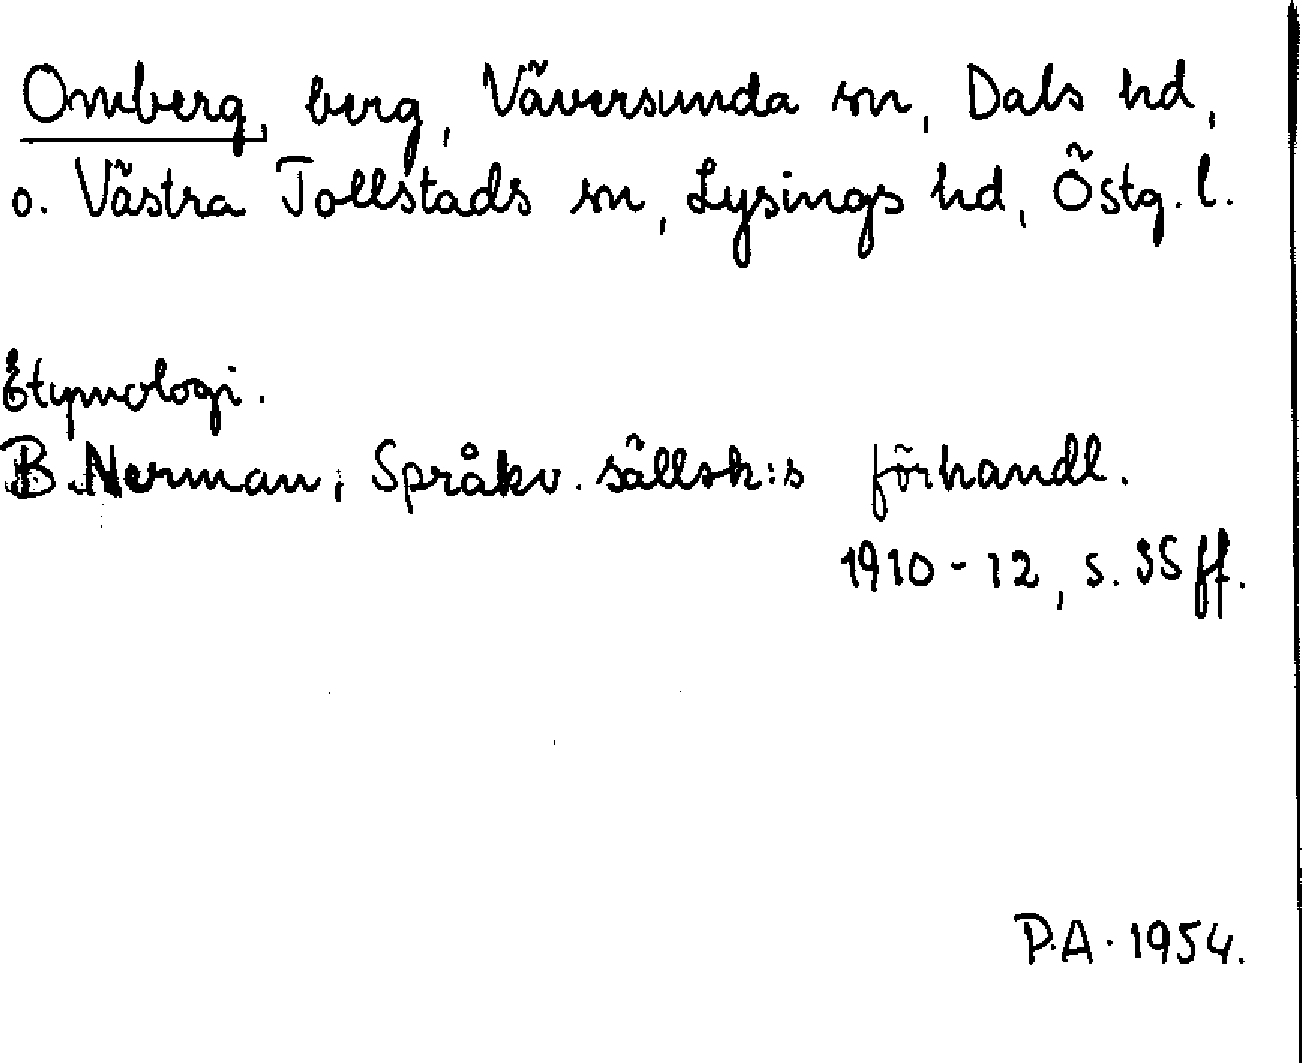 Omberg, berg, Väversunda sn, Dals hd,
o. Västra Tollstads sn, Lysings hd, Östg. l.
Etymologi.
B. Nerman, Språkv. sällsk:s förhandl.
1910-12, s. 95 ff.
P.A. 1954.